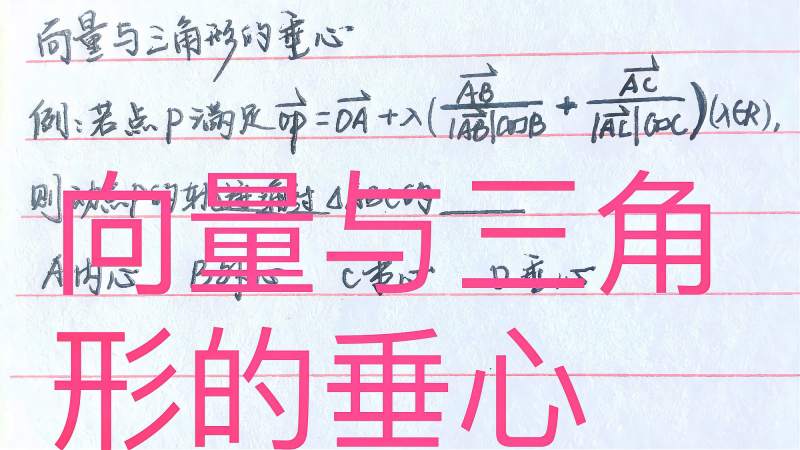 向量与三角形的垂心
例:若点P满足OP=OA+λ(AB/|AB|cosB+AC/|AC|cosC)(λ∈R),
则动点P的轨迹通过△ABC的
A内心 B外心 C重心 D垂心
向量与三角
形的垂心